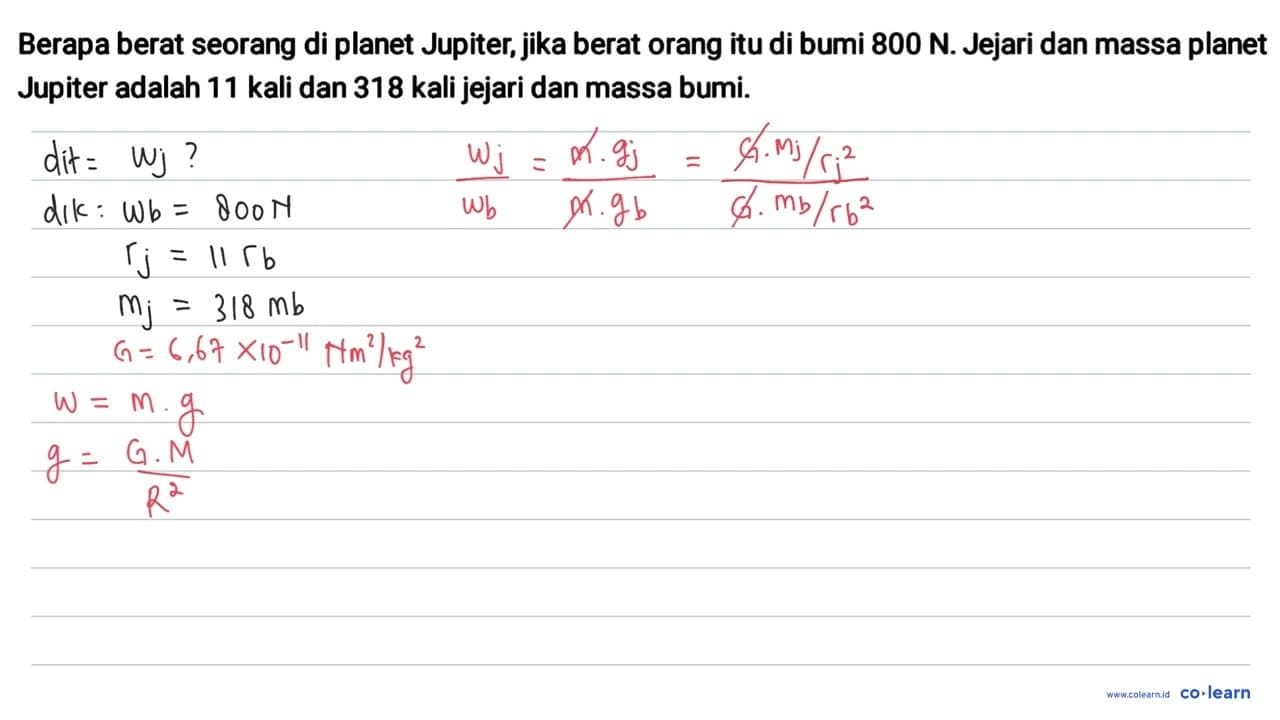 Berapa berat seorang di planet Jupiter, jika berat orang itu di bumi 800 N. Jejari dan massa planet
Jupiter adalah 11 kali dan 318 kali jejari dan massa bumi.
dit = Wj ?
dik : Wb = 800N
rj = 11 rb
mj = 318 mb
G = 6,67 × 10⁻¹¹ Nm²/kg²
W = m . g
g = G.M / R²
Wj / Wb = m.gj / m.gb = G.Mj/rj² / G.mb/rb²
www.colearn.id co·learn